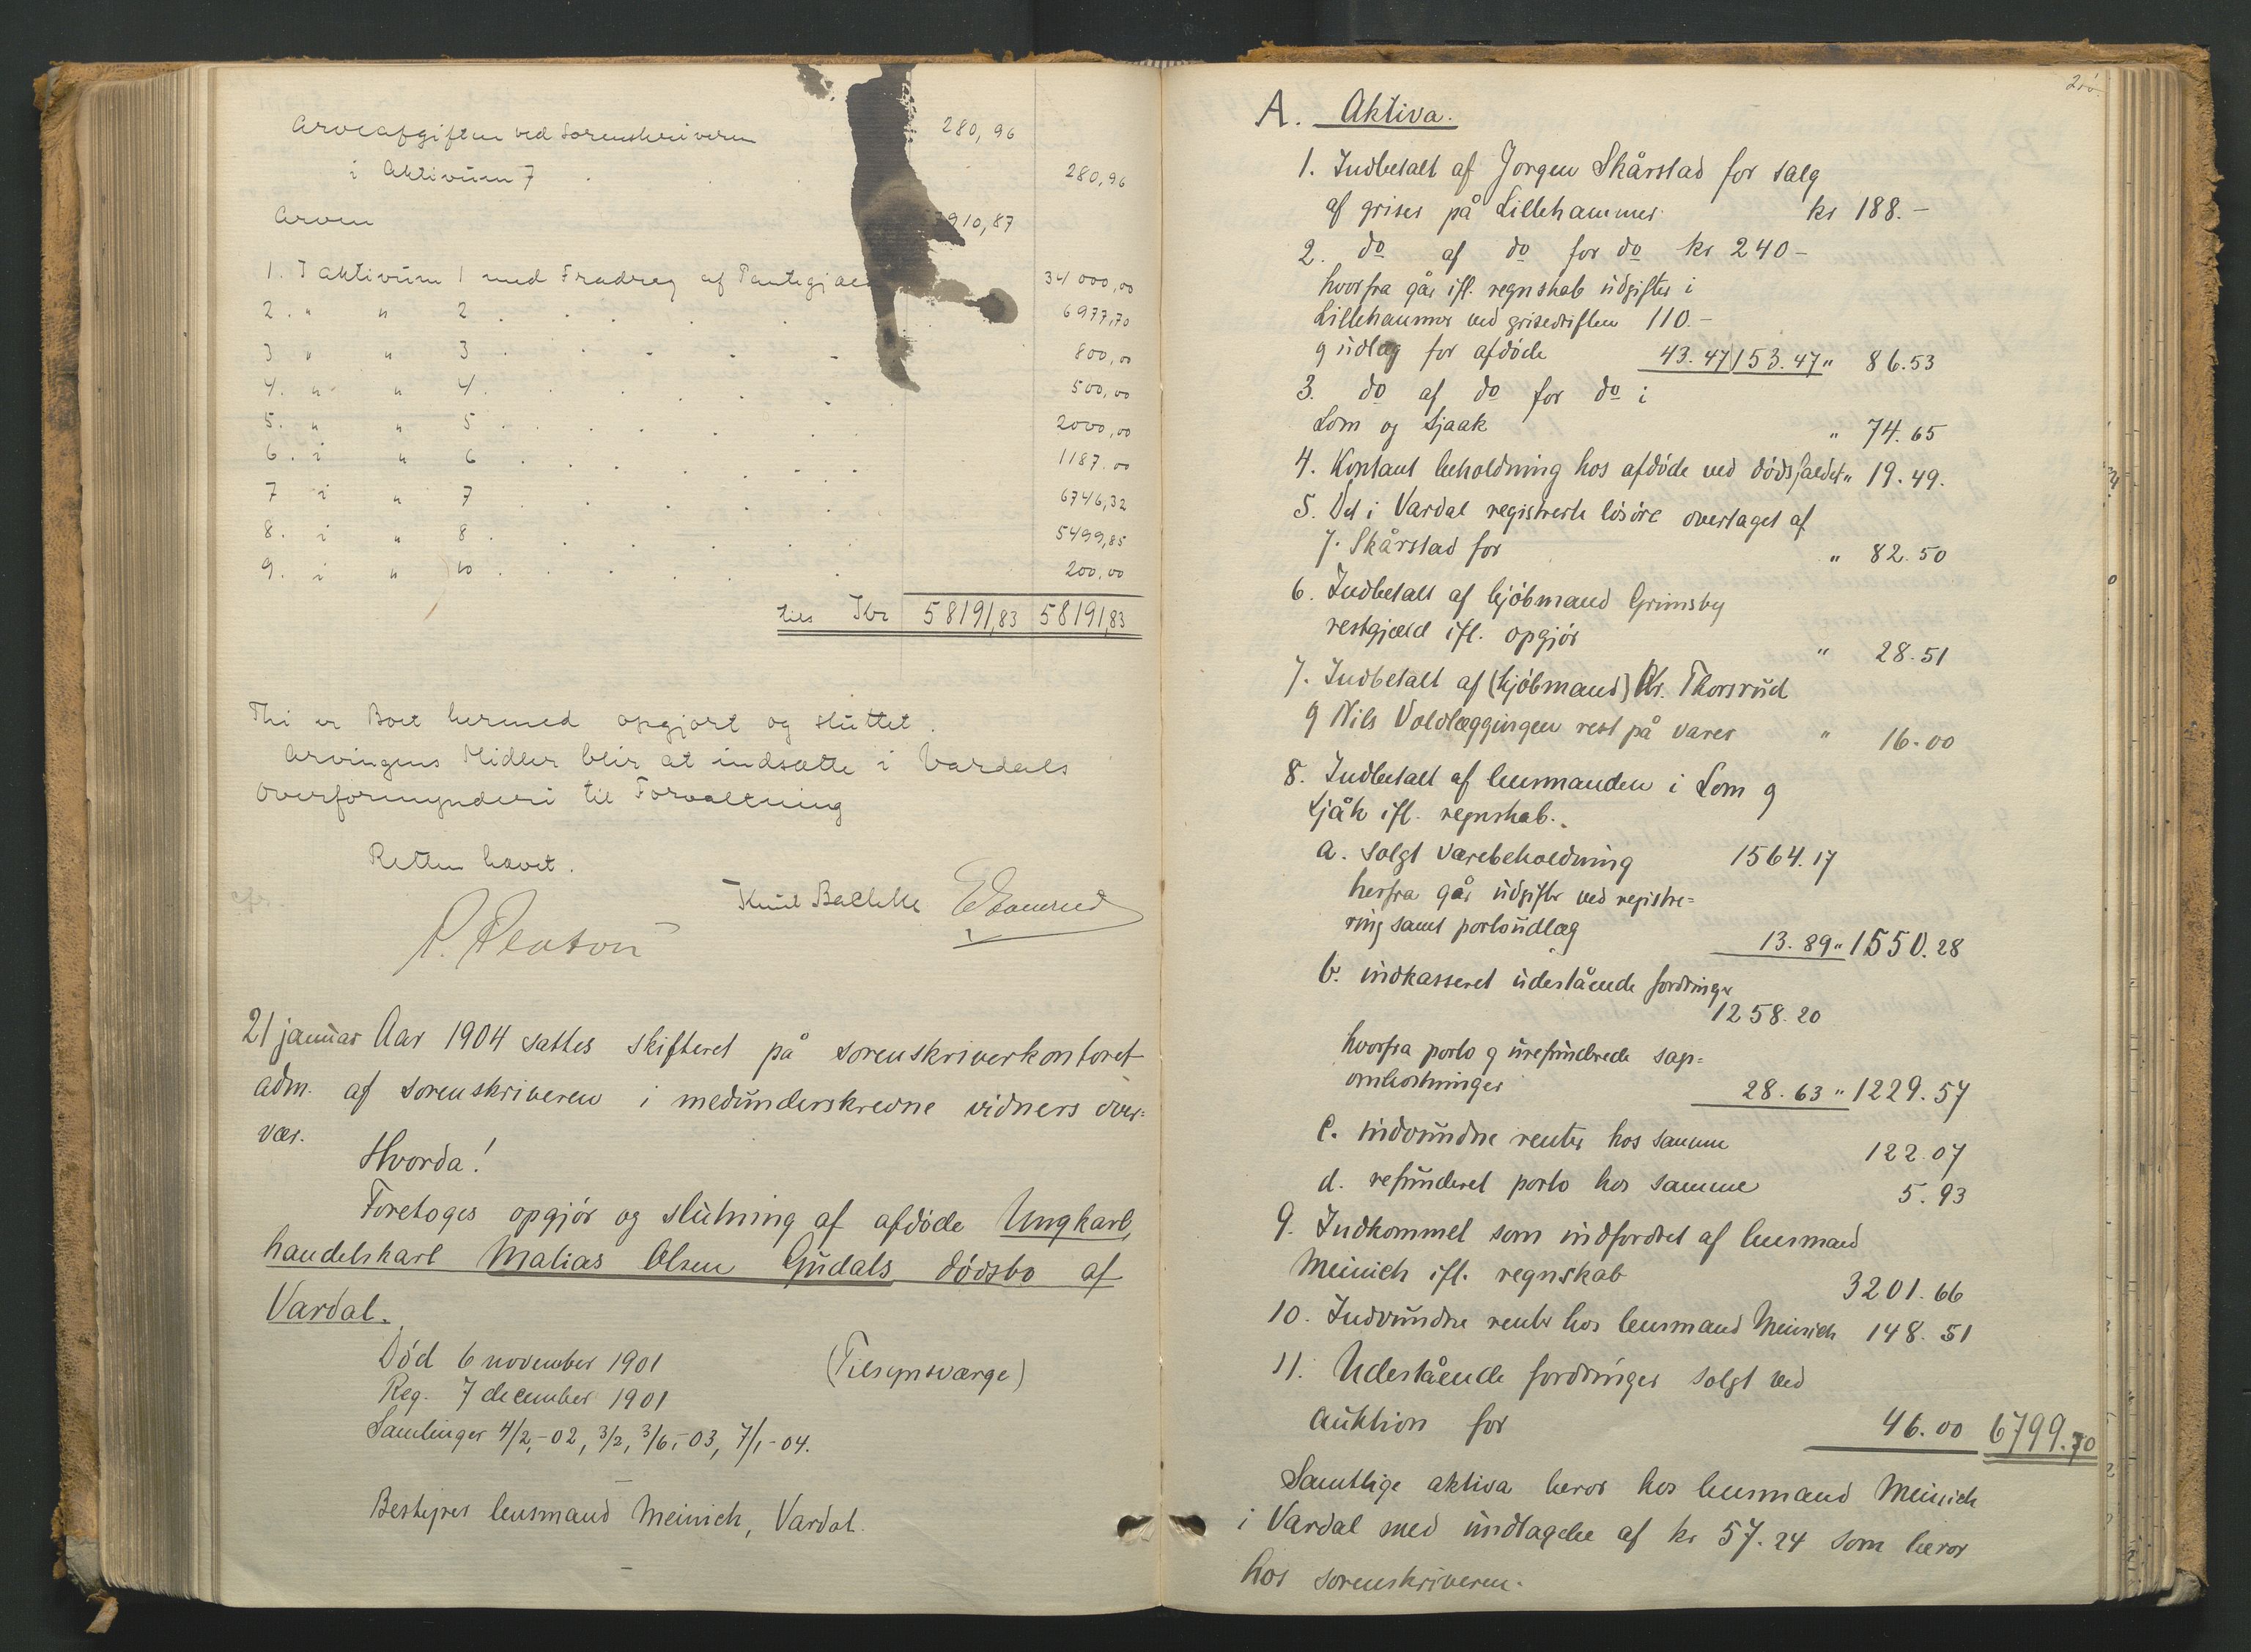 Arveafgiften ved Sorenskriveren 280,96
i Aktivum 7 280,96
Arven 910,87
1. I Aktivum 1 med Fradrag af 34 000,00
2. " " 2 6977,70
3 " " 3 800,00
4. " " 4. 500,00
5. " " 5 2000,00
6. i " 6 1187.00
7 i " 7 6746,32
8. i " 8 5499,85
9. i " 10 200,00
tils Kr 58191,83 58191,83
Thi er Boet hermed opgjort og sluttet.
Arvingens Midler blir at indsætte i Vardals
Overformynderi til Forvaltning
Retten hævet.
Knut
21 januar Aar 1904 sattes skifteret på sorenskriverkontoret
adm. af sorenskriveren i medunderskrevne vidners over=
vær.
Hvorda!
Foretoges opgjör og slutning af afdöde Ungkarl,
handelskarl Matias Olsen Gudals dödsbo af
Vardal.
Död 6 november 1901 (Tilsynsværge)
Reg. 7 december 1901
Samlinger 4/2,-02, 3/2, 3/6,-03, 7/1-04.
Bestyrer lensmand Meinich, Vardal.
A. Aktiva.
1. Indbetalt af Jorgen Skårstad for salg
af griser på Lillehammer kr 188.-
2. do af do for do kr 240-
hvorfra går ifl. regnskab udgifter i
Lillehammer ved grisedriften 110.-
g udlæg for afdöde 43.47 153.47 " 86.53
3. do af do for do i
Lom og Skjaak " 74.65
4. Kontant beholdning hos afdöde ved dödsfaldet " 19.49.
5. Det i Vardal registrerte lösöre overtaget af
J. Skårstad for " 82.50
6. Indbetalt af kjöbmand Grimsby
restgjæld ifl. opgjör " 28.51
7. Indbetalt af (kjöbmand) Kr. Thorsrud
g Nils Voldlæggingen rest på varer " 16.00
8. Indbetalt af lensmanden i Lom g
Skjåk ifl. regnskab.
a. solgt varebeholdning 1564.17
herfra går udgifter ved registre=
ring samt portoudlæg 13.89 " 1550.28
b. indkasseret udestående fordringer
1258.20
hvorfra porto g urefunderede sags=
omkostninger 28.63 " 1229.57
c. indvundne renter hos samme 122.07
d. refunderet porto hos samme 5.93
9. Indkommet som indfordret af lensmand
Meinich ifl. regnskab 3201.66
10. Indvundne renter hos lensmand Meinich 148.51
11. Udestående fordringer solgt ved
auktion for 46.00 6799.70
Samtlige aktiva beror hos lensmand Meinich
i Vardal med undtagelse af kr 57.24 som beror
hos sorenskriveren.